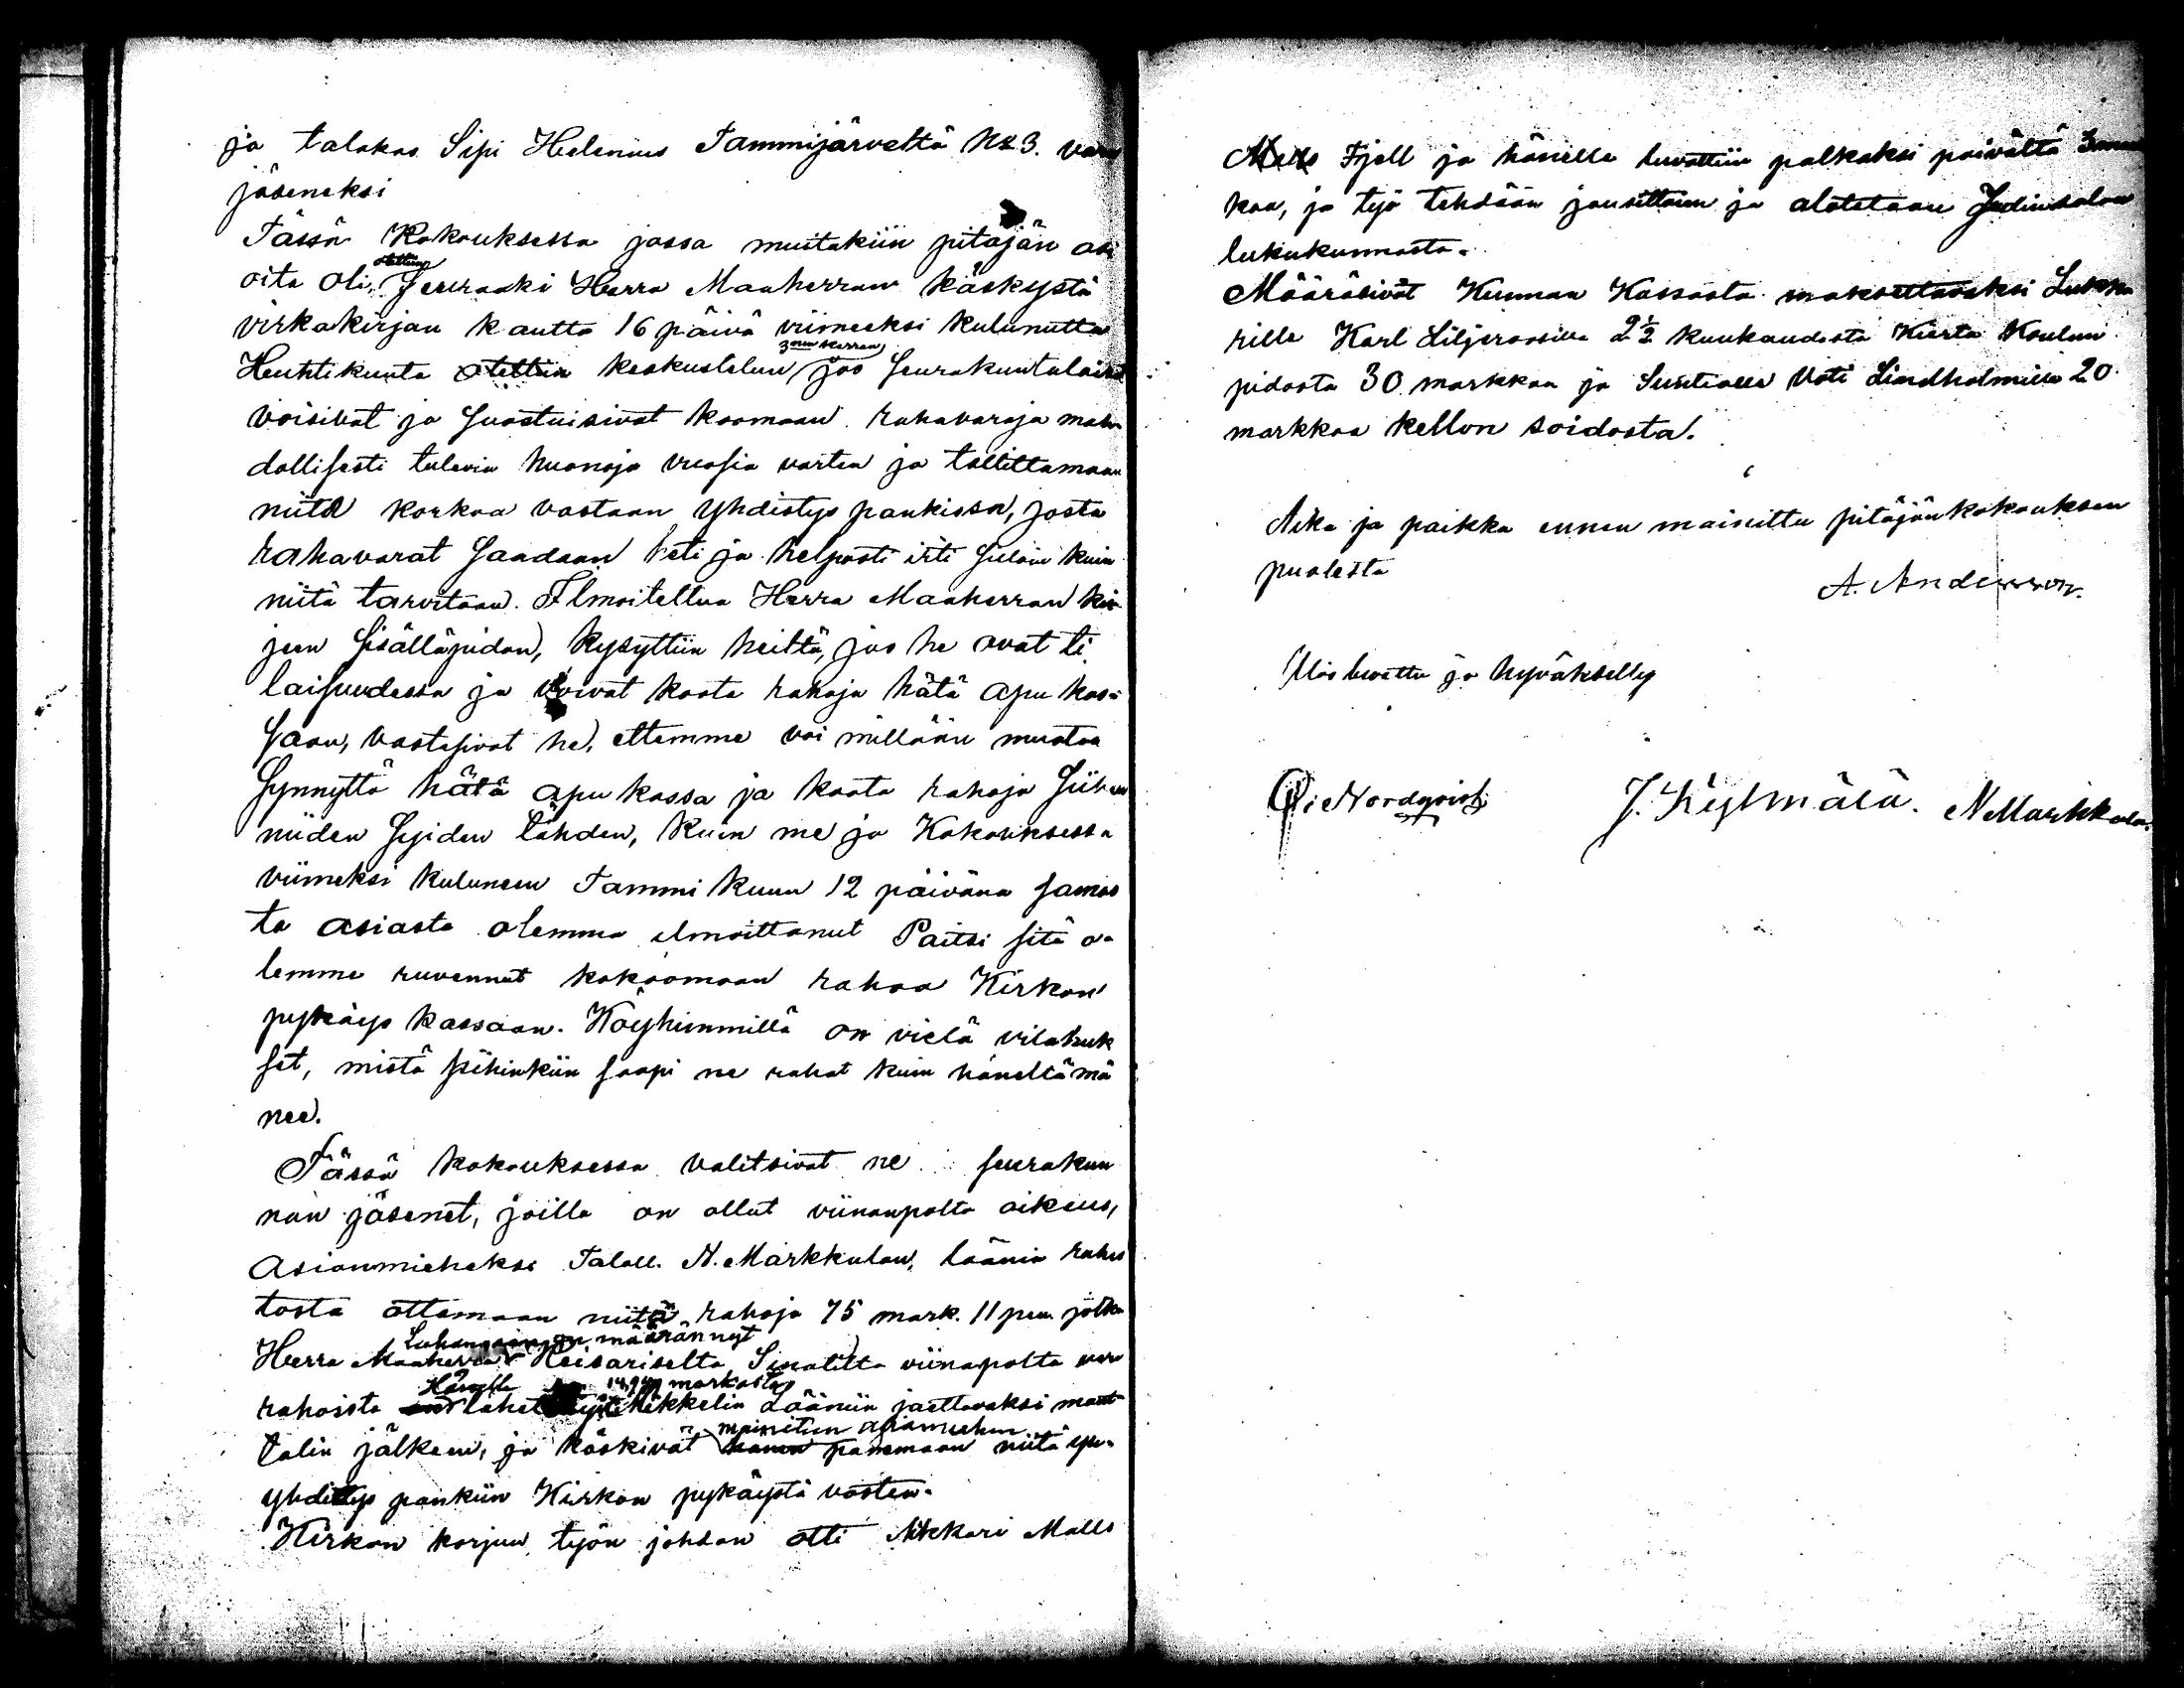 ja talokas Sipi Helenius Tammijärveltä № 3. vara
jäseneksi
Tässä Kokouksessa jossa muitakiin pitäjän asi
oita oli, otettiin Seuraaki Herra Maaherran käskystä
virkakirjan kautta 16 päivä viimeeksi kulunutta
Huhtikuuta otettiin keskusteluun 3nen kerran jos seurakuntalaiset
voisivat ja suostuisivat koomaan rahavaroja mah-
dollisesti tulevia huonoja vuosia varten ja tallittamaan
niitä korkoa vastaan Yhdistys pankissa, josta
rahavarat saadaan heti ja helposti irti silloin kuin
niitä tarvitaan. Ilmoitettua Herra Maaherran kir-
jeen sisälläpidon, kysyttiin heiltä, jos he ovat ti-
laisuudessa ja voivat koota rahoja hätä apu kas-
saan, vastasivat he, ettemme voi millään muotoa
synnyttä hätä apu kassa ja koota rahoja siihen
niiden syiden tähden, kuin me jo Kokouksessa
viimeksi kuluneen Tammi kuun 12 päivänä samas
ta asiasta olemme ilmoittanut Paitsi sitä o-
lemme ruvennut kokoomaan rahaa Kirkon
pykäys kassaan. Köyhimmillä on vielä vilahuk
set, mistä siihinkiin saapi ne rahat kuin häneltä mä
nee.
Tässä kokouksessa valitsivat ne seurakun
nan jäsenet, joilla on ollut viinanpolto oikeus,
asianmieheksi Taloll. N. Markkulan, läänin rahas
tosta ottamaan niitä rahoja 75 mark. 11 pen. jotka
Luhangaan on määrännyt
Herra Maaherra Keisariselta Senatilta viinapolta vero
Hänelle 14,949 markasta
rahoista on lähetettyistä Mikkelin Lääniin jaettavaksi mant-
mainitun asiamiehen
talin jälkeen, ja käskivät hänen panemaan niitä
yhdistys pankiin Kirkon pykäystä vasten.
Kirkon korjuu työn johdon otti Nikkari Malls
Mats Fjell ja hänelle luvattiin palkaksi päivältä 3 mark
kaa, ja työ tehdään jousittain ja alotetaan Judinsalon
lukukunnasta.
Määräsivät Kunnan Kassasta maksettavaksi Lukka
rille Karl Liljeroosille 2½ kuukaudesta Kierto Koulun
pidosta 30 markkaa ja Suntiolle Voti Lindholmille 20
markkaa kellon soidosta.
Aika ja paikka ennen mainittu pitäjänkokouksen
puolesta
A. Andersson.
Ylös luvettu ja hyväksytty
Nordqvist J. Kylmälä. N Markkula.